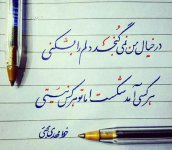 در خیال من نمی گنجد دلم را بشکنی
هر کسی آمد شکست اما تو هر کس نیستی